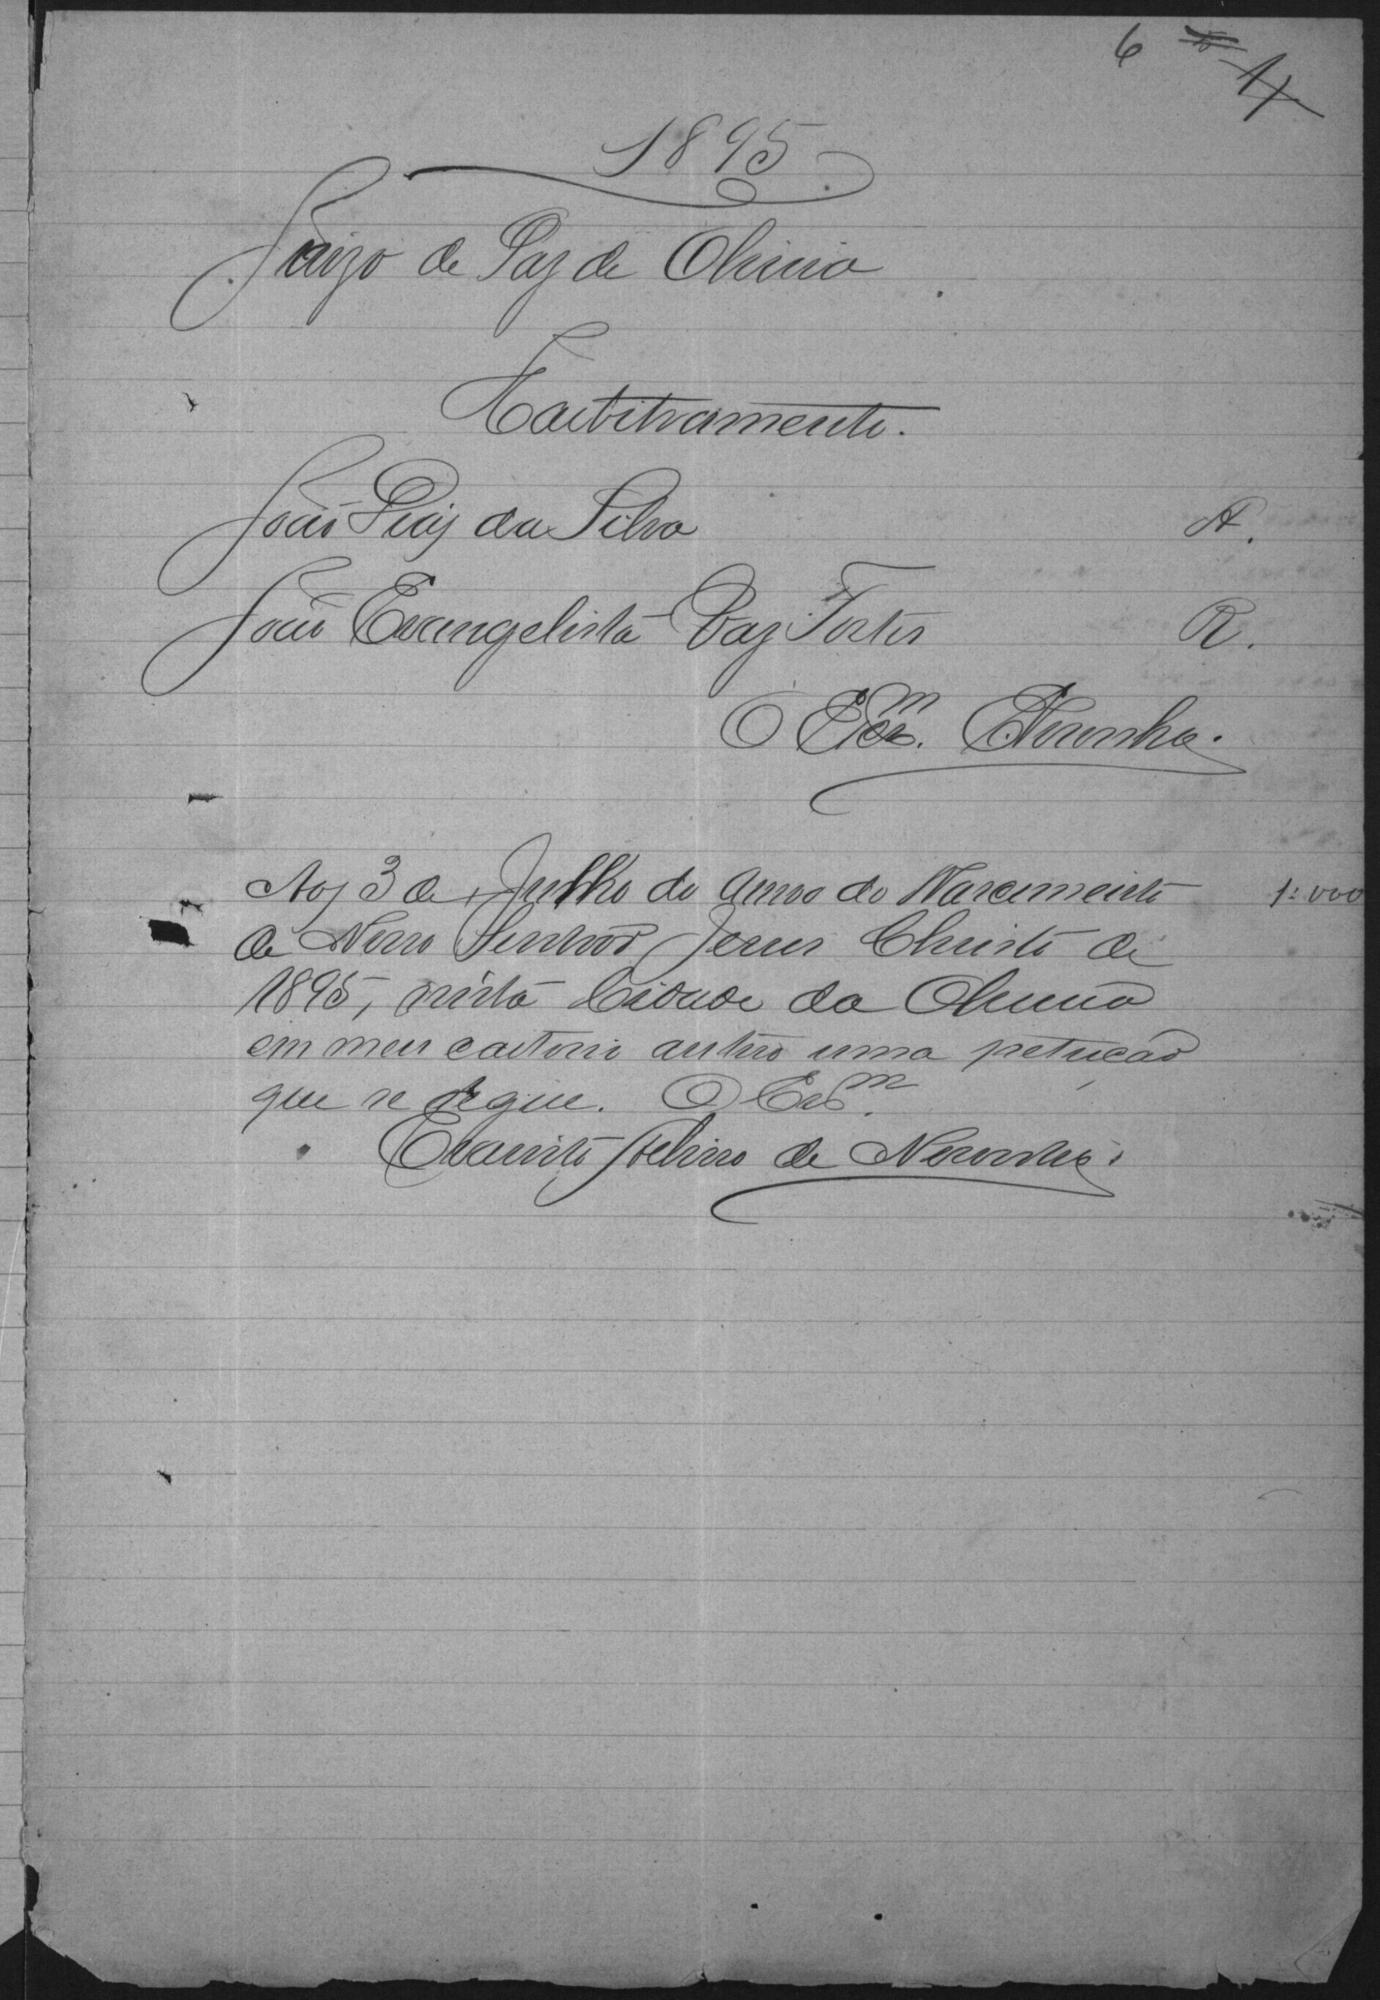 6
1895
Juizo de Paz de Oliveira
Earbitramento.
João Dias da Silva A.
João Evangelista Vaz Fortes R.
O Escm. Noronha.
Aos 3 de Julho do Anno do Nascimento 1:000
de Nosso Senhor Jesus Christo de
1895, nesta Cidade da Oliveira
em meu cartorio autuo uma petição
que se segue. O Escm.
Evaristo de Noronha.